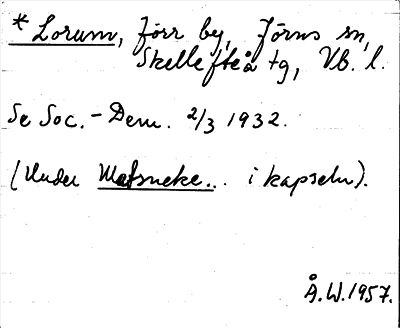 * Lorum, Förr by, Jörns sn,
Skellefteå tg, Vb. l.
Se Soc.-Dem. 2/3 1932.
(Under Matsneke... i kapseln).
Å.W.1957.